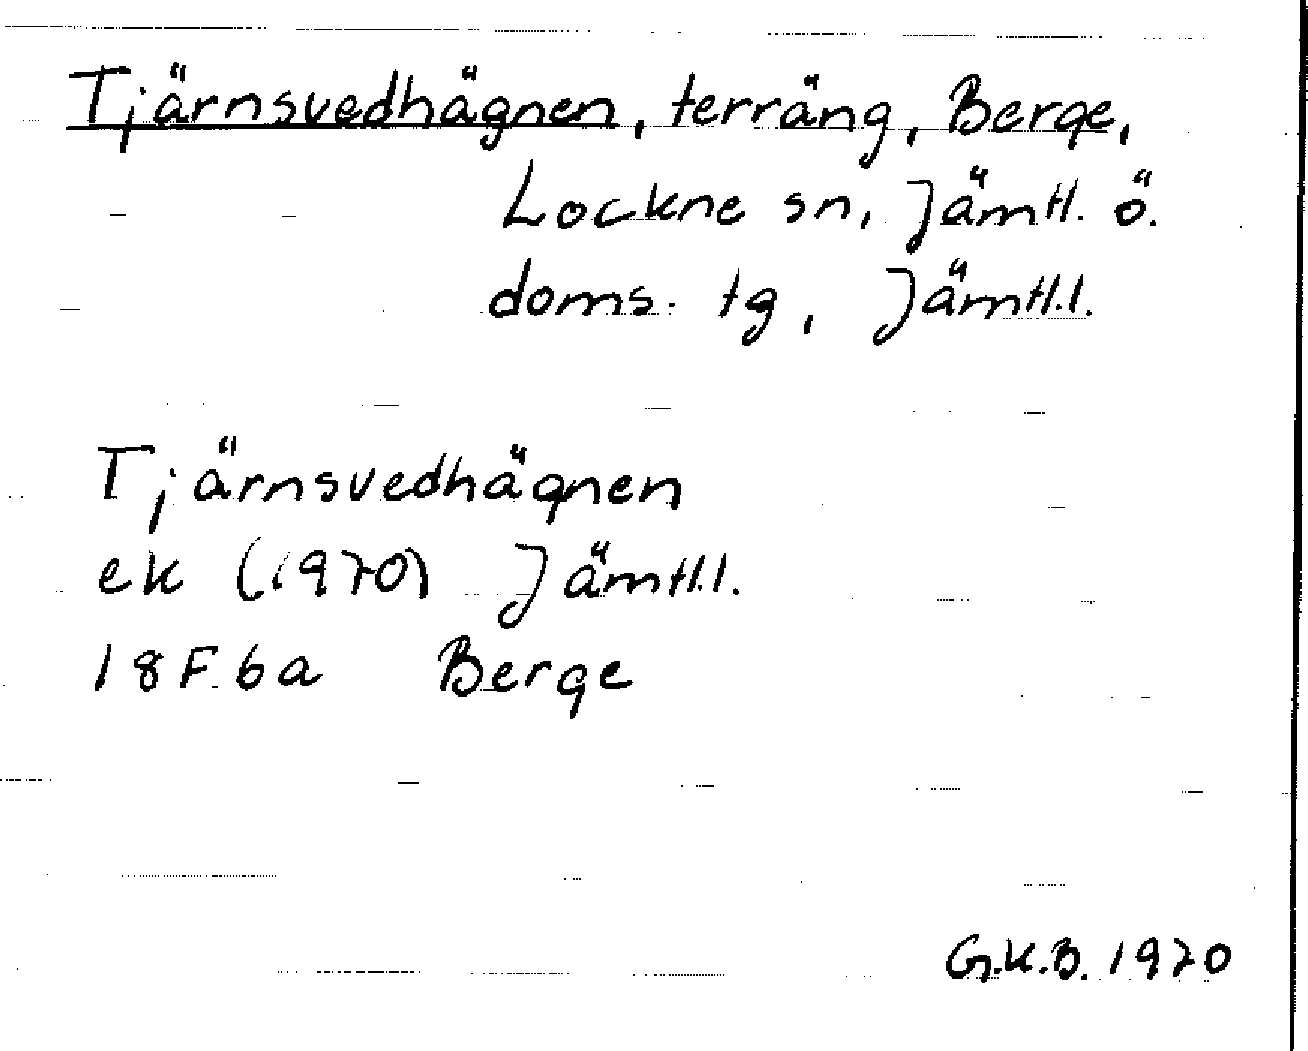 Tjärnsvedhägnen, terräng, Berge,
Lockne sn, Jämtl. ö.
doms. tg, Jämtl.l.
Tjärnsvedhägnen
ek (1970) Jämtl.l.
18F.6a Berge
G.K.B. 1970